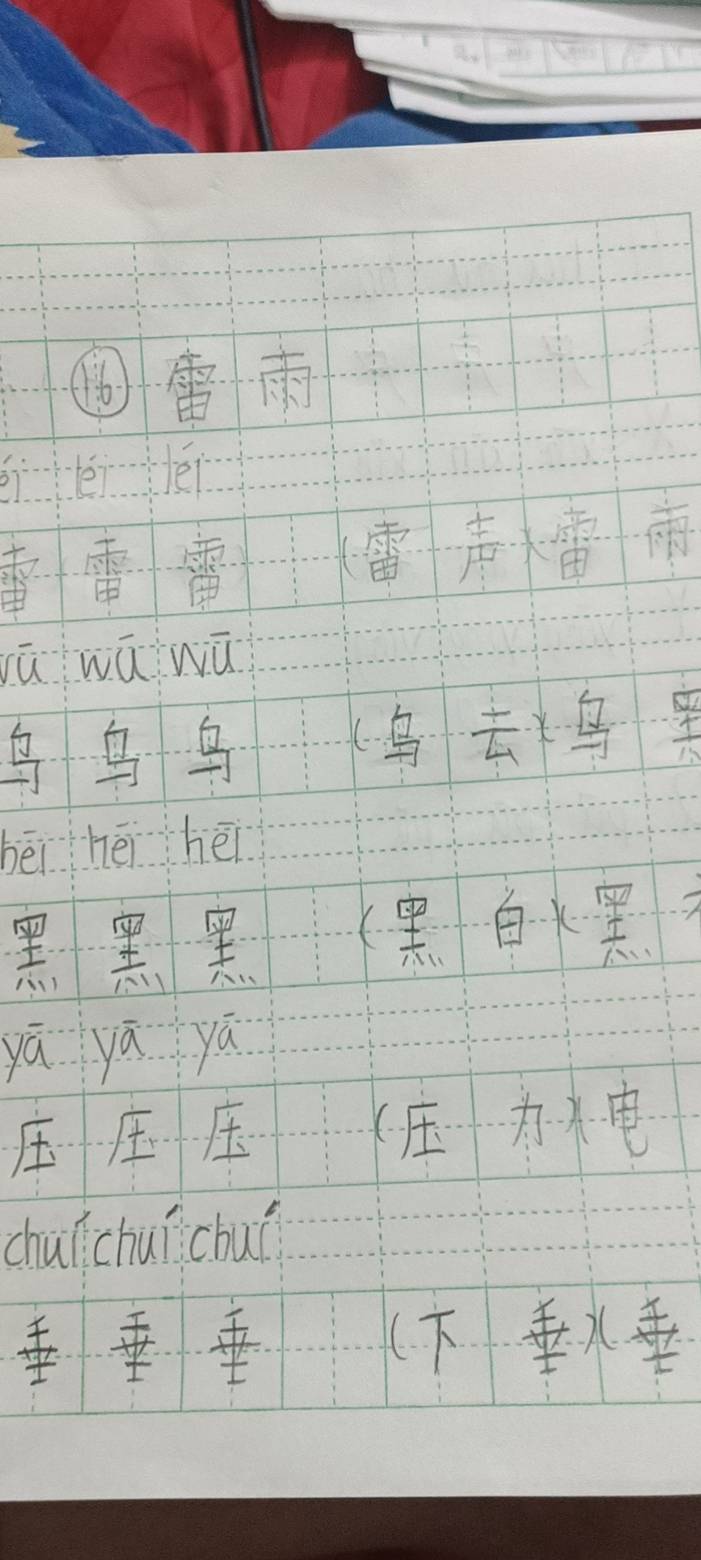 ⑯ 雷 雨
éi léi léi
雷 雷 雷 (雷 声)(雷 雨
wū wū wū
乌 乌 乌 (乌 云)(乌 黑
hēi hēi hēi
黑 黑 黑 (黑 白)(黑
yā yā yā
压 压 压 (压 力)(电
chuí chuí chuí
垂 垂 垂 (下 垂)(垂